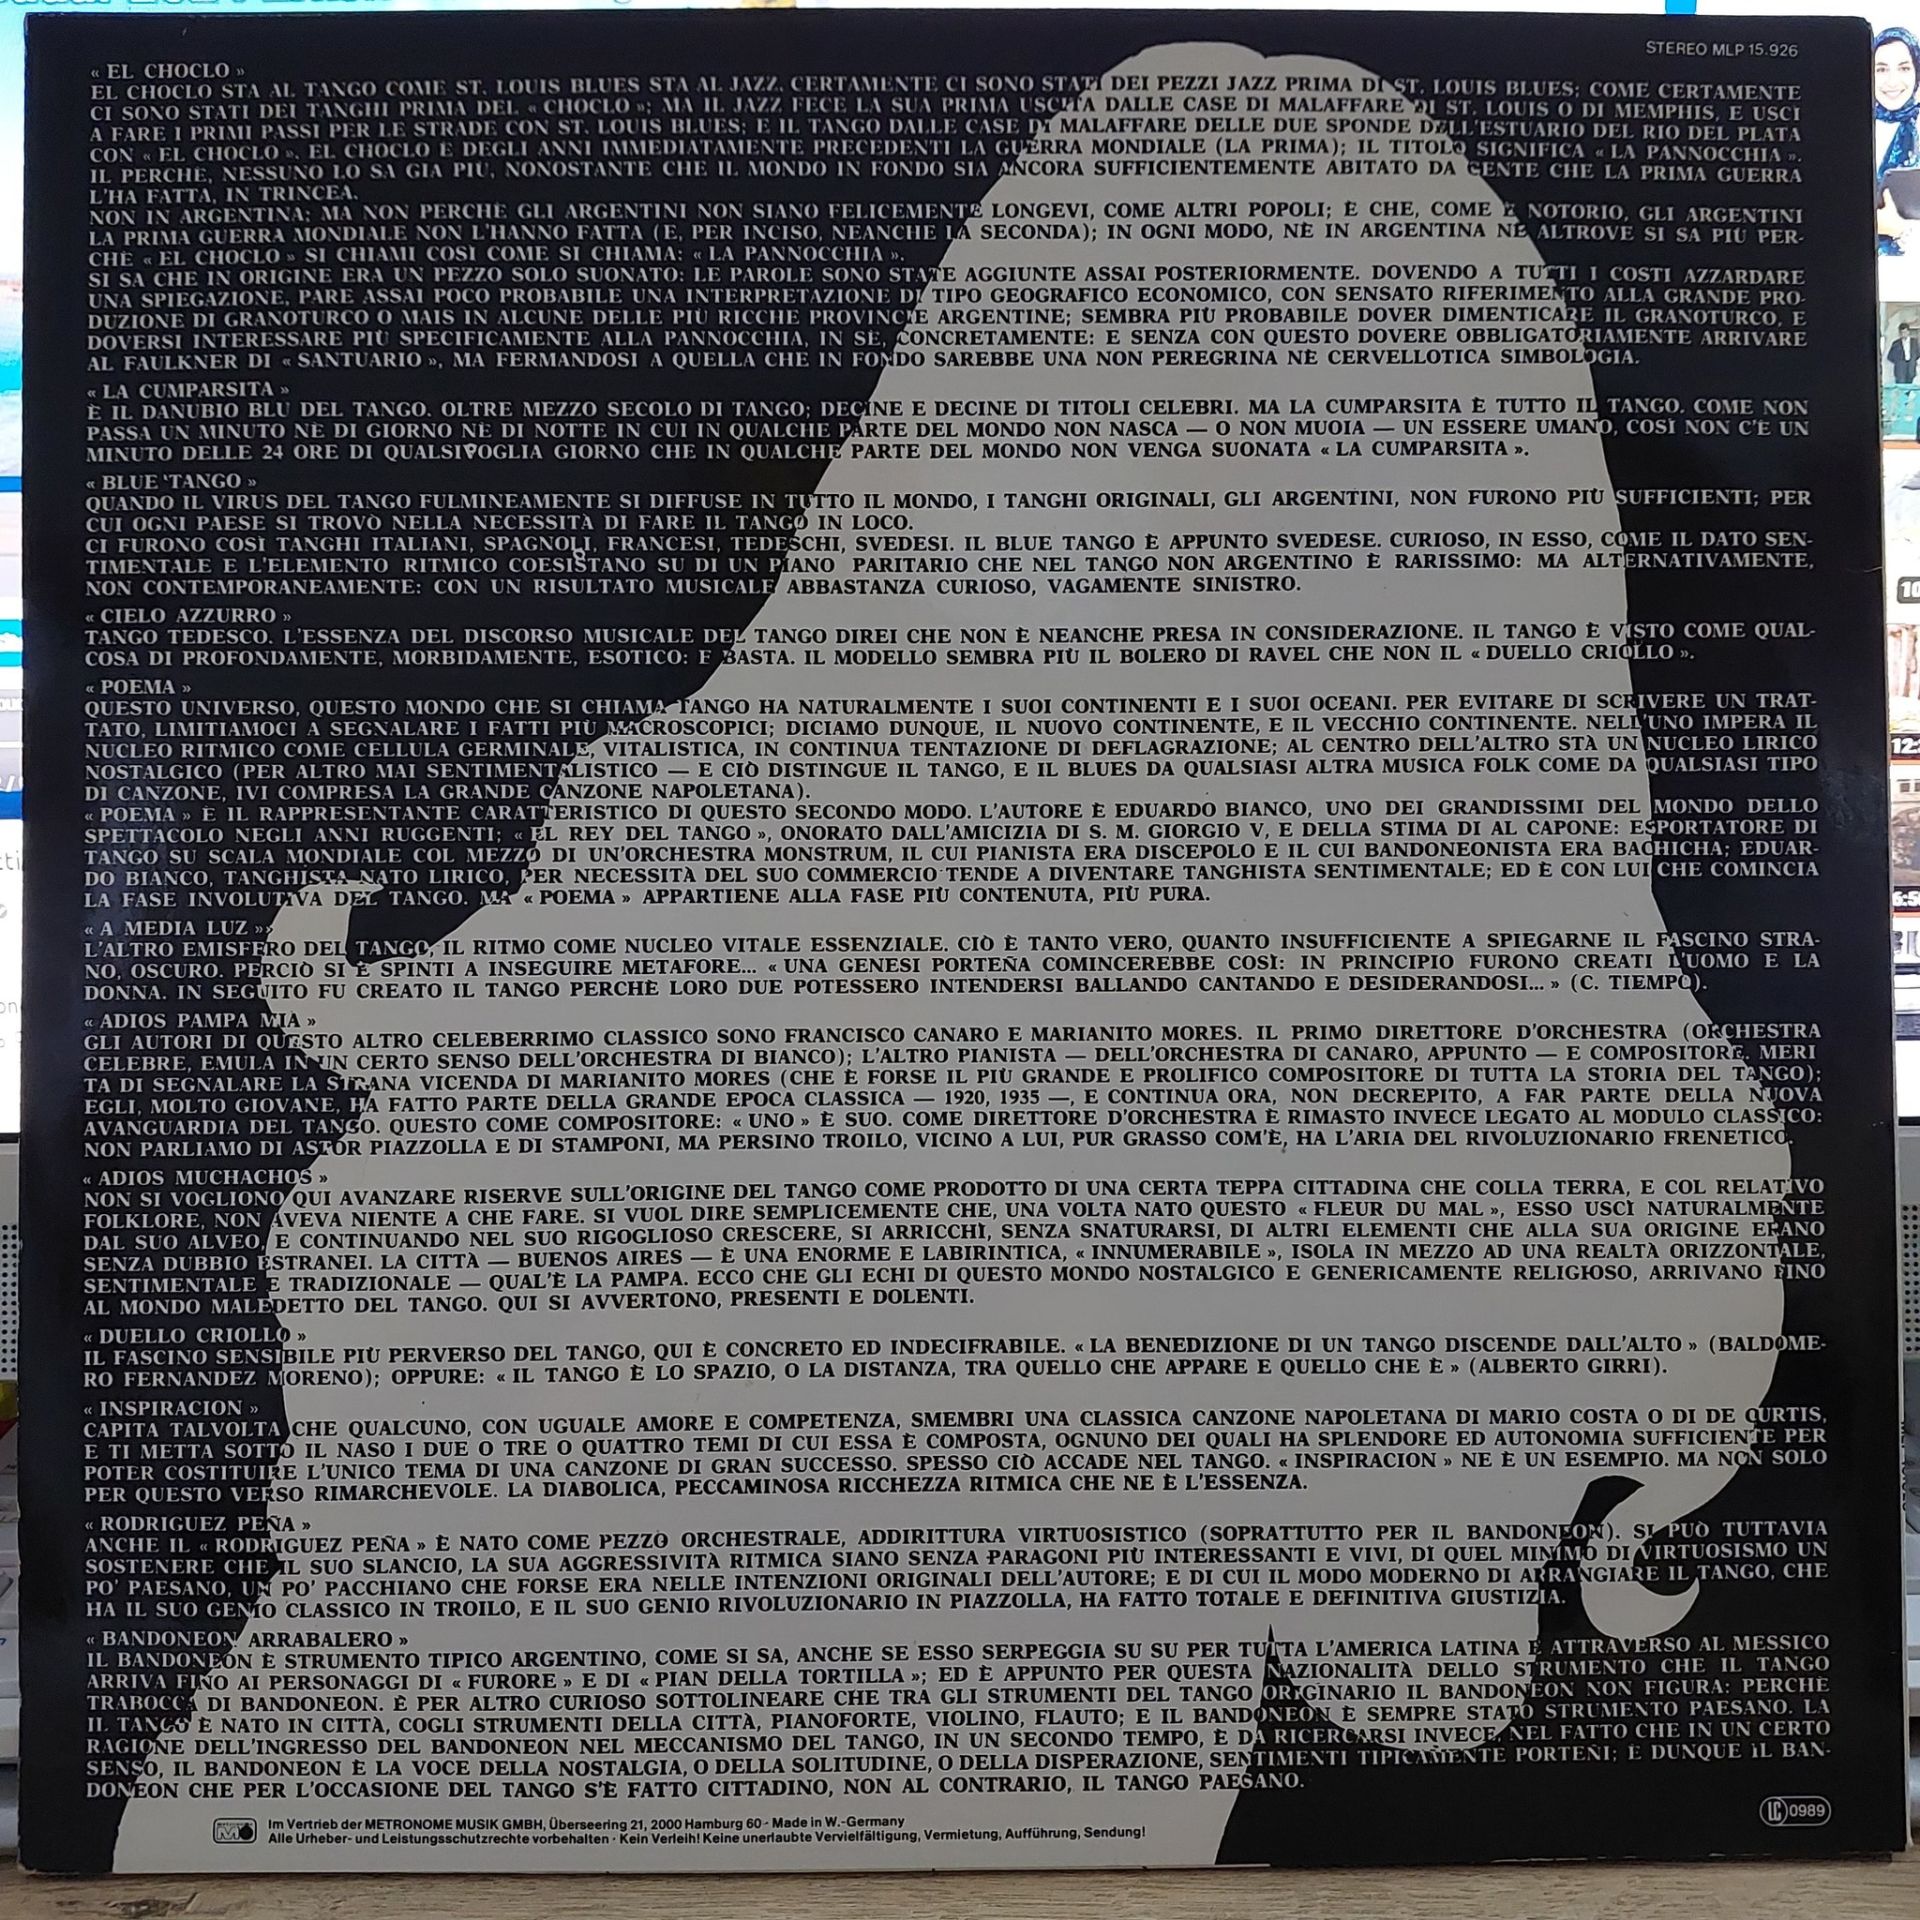 STEREO MLP 15.926
« EL CHOCLO »
EL CHOCLO STA AL TANGO COME ST. LOUIS BLUES STA AL JAZZ. CERTAMENTE CI SONO STATI DEI PEZZI JAZZ PRIMA DI ST. LOUIS BLUES; COME CERTAMENTE
CI SONO STATI DEI TANGHI PRIMA DEL « CHOCLO »; MA IL JAZZ FECE LA SUA PRIMA USCITA DALLE CASE DI MALAFFARE DI ST. LOUIS O DI MEMPHIS, E USCI
A FARE I PRIMI PASSI PER LE STRADE CON ST. LOUIS BLUES; E IL TANGO DALLE CASE DI MALAFFARE DELLE DUE SPONDE DELL'ESTUARIO DEL RIO DEL PLATA
CON « EL CHOCLO ». EL CHOCLO È DEGLI ANNI IMMEDIATAMENTE PRECEDENTI LA GUERRA MONDIALE (LA PRIMA); IL TITOLO SIGNIFICA « LA PANNOCCHIA ».
IL PERCHÈ, NESSUNO LO SA GIA PIÙ, NONOSTANTE CHE IL MONDO IN FONDO SIA ANCORA SUFFICIENTEMENTE ABITATO DA GENTE CHE LA PRIMA GUERRA
L'HA FATTA, IN TRINCEA.
NON IN ARGENTINA; MA NON PERCHÈ GLI ARGENTINI NON SIANO FELICEMENTE LONGEVI, COME ALTRI POPOLI; È CHE, COME È NOTORIO, GLI ARGENTINI
LA PRIMA GUERRA MONDIALE NON L'HANNO FATTA (E, PER INCISO, NEANCHE LA SECONDA); IN OGNI MODO, NÈ IN ARGENTINA NÈ ALTROVE SI SA PIÙ PER-
CHÈ « EL CHOCLO » SI CHIAMI COSÌ COME SI CHIAMA: « LA PANNOCCHIA ».
SI SA CHE IN ORIGINE ERA UN PEZZO SOLO SUONATO: LE PAROLE SONO STATE AGGIUNTE ASSAI POSTERIORMENTE. DOVENDO A TUTTI I COSTI AZZARDARE
UNA SPIEGAZIONE, PARE ASSAI POCO PROBABILE UNA INTERPRETAZIONE DI TIPO GEOGRAFICO ECONOMICO, CON SENSATO RIFERIMENTO ALLA GRANDE PRO-
DUZIONE DI GRANOTURCO O MAIS IN ALCUNE DELLE PIÙ RICCHE PROVINCIE ARGENTINE; SEMBRA PIÙ PROBABILE DOVER DIMENTICARE IL GRANOTURCO, E
DOVERSI INTERESSARE PIÙ SPECIFICAMENTE ALLA PANNOCCHIA, IN SÈ, CONCRETAMENTE: E SENZA CON QUESTO DOVERE OBBLIGATORIAMENTE ARRIVARE
AL FAULKNER DI « SANTUARIO », MA FERMANDOSI A QUELLA CHE IN FONDO SAREBBE UNA NON PEREGRINA NÈ CERVELLOTICA SIMBOLOGIA.
« LA CUMPARSITA »
È IL DANUBIO BLU DEL TANGO. OLTRE MEZZO SECOLO DI TANGO; DECINE E DECINE DI TITOLI CELEBRI. MA LA CUMPARSITA È TUTTO IL TANGO. COME NON
PASSA UN MINUTO NÈ DI GIORNO NÈ DI NOTTE IN CUI IN QUALCHE PARTE DEL MONDO NON NASCA — O NON MUOIA — UN ESSERE UMANO, COSÌ NON C'È UN
MINUTO DELLE 24 ORE DI QUALSIVOGLIA GIORNO CHE IN QUALCHE PARTE DEL MONDO NON VENGA SUONATA « LA CUMPARSITA ».
« BLUE TANGO »
QUANDO IL VIRUS DEL TANGO FULMINEAMENTE SI DIFFUSE IN TUTTO IL MONDO, I TANGHI ORIGINALI, GLI ARGENTINI, NON FURONO PIÙ SUFFICIENTI; PER
CUI OGNI PAESE SI TROVÒ NELLA NECESSITÀ DI FARE IL TANGO IN LOCO.
CI FURONO COSÌ TANGHI ITALIANI, SPAGNOLI, FRANCESI, TEDESCHI, SVEDESI. IL BLUE TANGO È APPUNTO SVEDESE. CURIOSO, IN ESSO, COME IL DATO SEN-
TIMENTALE E L'ELEMENTO RITMICO COESISTANO SU DI UN PIANO PARITARIO CHE NEL TANGO NON ARGENTINO È RARISSIMO: MA ALTERNATIVAMENTE,
NON CONTEMPORANEAMENTE: CON UN RISULTATO MUSICALE ABBASTANZA CURIOSO, VAGAMENTE SINISTRO.
« CIELO AZZURRO »
TANGO TEDESCO. L'ESSENZA DEL DISCORSO MUSICALE DEL TANGO DIREI CHE NON È NEANCHE PRESA IN CONSIDERAZIONE. IL TANGO È VISTO COME QUAL-
COSA DI PROFONDAMENTE, MORBIDAMENTE, ESOTICO: E BASTA. IL MODELLO SEMBRA PIÙ IL BOLERO DI RAVEL CHE NON IL « DUELLO CRIOLLO ».
« POEMA »
QUESTO UNIVERSO, QUESTO MONDO CHE SI CHIAMA TANGO HA NATURALMENTE I SUOI CONTINENTI E I SUOI OCEANI. PER EVITARE DI SCRIVERE UN TRAT-
TATO, LIMITIAMOCI A SEGNALARE I FATTI PIÙ MACROSCOPICI; DICIAMO DUNQUE, IL NUOVO CONTINENTE, E IL VECCHIO CONTINENTE. NELL'UNO IMPERA IL
NUCLEO RITMICO COME CELLULA GERMINALE, VITALISTICA, IN CONTINUA TENTAZIONE DI DEFLAGRAZIONE; AL CENTRO DELL'ALTRO STÀ UN NUCLEO LIRICO
NOSTALGICO (PER ALTRO MAI SENTIMENTALISTICO — E CIÒ DISTINGUE IL TANGO, E IL BLUES DA QUALSIASI ALTRA MUSICA FOLK COME DA QUALSIASI TIPO
DI CANZONE, IVI COMPRESA LA GRANDE CANZONE NAPOLETANA).
« POEMA » È IL RAPPRESENTANTE CARATTERISTICO DI QUESTO SECONDO MODO. L'AUTORE È EDUARDO BIANCO, UNO DEI GRANDISSIMI DEL MONDO DELLO
SPETTACOLO NEGLI ANNI RUGGENTI; « EL REY DEL TANGO », ONORATO DALL'AMICIZIA DI S. M. GIORGIO V, E DELLA STIMA DI AL CAPONE: ESPORTATORE DI
TANGO SU SCALA MONDIALE COL MEZZO DI UN'ORCHESTRA MONSTRUM, IL CUI PIANISTA ERA DISCEPOLO E IL CUI BANDONEONISTA ERA BACHICHA; EDUAR-
DO BIANCO, TANGHISTA NATO LIRICO, PER NECESSITÀ DEL SUO COMMERCIO TENDE A DIVENTARE TANGHISTA SENTIMENTALE; ED È CON LUI CHE COMINCIA
LA FASE INVOLUTIVA DEL TANGO. MA « POEMA » APPARTIENE ALLA FASE PIÙ CONTENUTA, PIÙ PURA.
« A MEDIA LUZ »
L'ALTRO EMISFERO DEL TANGO, IL RITMO COME NUCLEO VITALE ESSENZIALE. CIÒ È TANTO VERO, QUANTO INSUFFICIENTE A SPIEGARNE IL FASCINO STRA-
NO, OSCURO. PERCIÒ SI È SPINTI A INSEGUIRE METAFORE... « UNA GENESI PORTEÑA COMINCEREBBE COSÌ: IN PRINCIPIO FURONO CREATI L'UOMO E LA
DONNA. IN SEGUITO FU CREATO IL TANGO PERCHÈ LORO DUE POTESSERO INTENDERSI BALLANDO CANTANDO E DESIDERANDOSI... » (C. TIEMPO).
« ADIOS PAMPA MIA »
GLI AUTORI DI QUESTO ALTRO CELEBERRIMO CLASSICO SONO FRANCISCO CANARO E MARIANITO MORES. IL PRIMO DIRETTORE D'ORCHESTRA (ORCHESTRA
CELEBRE, EMULA IN UN CERTO SENSO DELL'ORCHESTRA DI BIANCO); L'ALTRO PIANISTA — DELL'ORCHESTRA DI CANARO, APPUNTO — E COMPOSITORE. MERI
TA DI SEGNALARE LA STRANA VICENDA DI MARIANITO MORES (CHE È FORSE IL PIÙ GRANDE E PROLIFICO COMPOSITORE DI TUTTA LA STORIA DEL TANGO);
EGLI, MOLTO GIOVANE, HA FATTO PARTE DELLA GRANDE EPOCA CLASSICA — 1920, 1935 —, E CONTINUA ORA, NON DECREPITO, A FAR PARTE DELLA NUOVA
AVANGUARDIA DEL TANGO. QUESTO COME COMPOSITORE: « UNO » È SUO. COME DIRETTORE D'ORCHESTRA È RIMASTO INVECE LEGATO AL MODULO CLASSICO:
NON PARLIAMO DI ASTOR PIAZZOLLA E DI STAMPONI, MA PERSINO TROILO, VICINO A LUI, PUR GRASSO COM'È, HA L'ARIA DEL RIVOLUZIONARIO FRENETICO.
« ADIOS MUCHACHOS »
NON SI VOGLIONO QUI AVANZARE RISERVE SULL'ORIGINE DEL TANGO COME PRODOTTO DI UNA CERTA TEPPA CITTADINA CHE COLLA TERRA, E COL RELATIVO
FOLKLORE, NON AVEVA NIENTE A CHE FARE. SI VUOL DIRE SEMPLICEMENTE CHE, UNA VOLTA NATO QUESTO « FLEUR DU MAL », ESSO USCÌ NATURALMENTE
DAL SUO ALVEO, E CONTINUANDO NEL SUO RIGOGLIOSO CRESCERE, SI ARRICCHÌ, SENZA SNATURARSI, DI ALTRI ELEMENTI CHE ALLA SUA ORIGINE ERANO
SENZA DUBBIO ESTRANEI. LA CITTÀ — BUENOS AIRES — È UNA ENORME E LABIRINTICA, « INNUMERABILE », ISOLA IN MEZZO AD UNA REALTÀ ORIZZONTALE,
SENTIMENTALE E TRADIZIONALE — QUAL'È LA PAMPA. ECCO CHE GLI ECHI DI QUESTO MONDO NOSTALGICO E GENERICAMENTE RELIGIOSO, ARRIVANO FINO
AL MONDO MALEDETTO DEL TANGO. QUI SI AVVERTONO, PRESENTI E DOLENTI.
« DUELLO CRIOLLO »
IL FASCINO SENSIBILE PIÙ PERVERSO DEL TANGO, QUI È CONCRETO ED INDECIFRABILE. « LA BENEDIZIONE DI UN TANGO DISCENDE DALL'ALTO » (BALDOME-
RO FERNANDEZ MORENO); OPPURE: « IL TANGO È LO SPAZIO, O LA DISTANZA, TRA QUELLO CHE APPARE E QUELLO CHE È » (ALBERTO GIRRI).
« INSPIRACION »
CAPITA TALVOLTA CHE QUALCUNO, CON UGUALE AMORE E COMPETENZA, SMEMBRI UNA CLASSICA CANZONE NAPOLETANA DI MARIO COSTA O DI DE CURTIS,
E TI METTA SOTTO IL NASO I DUE O TRE O QUATTRO TEMI DI CUI ESSA È COMPOSTA, OGNUNO DEI QUALI HA SPLENDORE ED AUTONOMIA SUFFICIENTE PER
POTER COSTITUIRE L'UNICO TEMA DI UNA CANZONE DI GRAN SUCCESSO. SPESSO CIÒ ACCADE NEL TANGO. « INSPIRACION » NE È UN ESEMPIO. MA NON SOLO
PER QUESTO VERSO RIMARCHEVOLE. LA DIABOLICA, PECCAMINOSA RICCHEZZA RITMICA CHE NE È L'ESSENZA.
« RODRIGUEZ PEÑA »
ANCHE IL « RODRIGUEZ PEÑA » È NATO COME PEZZO ORCHESTRALE, ADDIRITTURA VIRTUOSISTICO (SOPRATTUTTO PER IL BANDONEON). SI PUÒ TUTTAVIA
SOSTENERE CHE IL SUO SLANCIO, LA SUA AGGRESSIVITÀ RITMICA SIANO SENZA PARAGONI PIÙ INTERESSANTI E VIVI, DI QUEL MINIMO DI VIRTUOSISMO UN
PO' PAESANO, UN PO' PACCHIANO CHE FORSE ERA NELLE INTENZIONI ORIGINALI DELL'AUTORE; E DI CUI IL MODO MODERNO DI ARRANGIARE IL TANGO, CHE
HA IL SUO GENIO CLASSICO IN TROILO, E IL SUO GENIO RIVOLUZIONARIO IN PIAZZOLLA, HA FATTO TOTALE E DEFINITIVA GIUSTIZIA.
« BANDONEON ARRABALERO »
IL BANDONEON È STRUMENTO TIPICO ARGENTINO, COME SI SA, ANCHE SE ESSO SERPEGGIA SU SU PER TUTTA L'AMERICA LATINA E ATTRAVERSO AL MESSICO
ARRIVA FINO AI PERSONAGGI DI « FURORE » E DI « PIAN DELLA TORTILLA »; ED È APPUNTO PER QUESTA NAZIONALITÀ DELLO STRUMENTO CHE IL TANGO
TRABOCCA DI BANDONEON. È PER ALTRO CURIOSO SOTTOLINEARE CHE TRA GLI STRUMENTI DEL TANGO ORIGINARIO IL BANDONEON NON FIGURA: PERCHÈ
IL TANGO È NATO IN CITTÀ, COGLI STRUMENTI DELLA CITTÀ, PIANOFORTE, VIOLINO, FLAUTO; E IL BANDONEON È SEMPRE STATO STRUMENTO PAESANO. LA
RAGIONE DELL'INGRESSO DEL BANDONEON NEL MECCANISMO DEL TANGO, IN UN SECONDO TEMPO, È DA RICERCARSI INVECE, NEL FATTO CHE IN UN CERTO
SENSO, IL BANDONEON È LA VOCE DELLA NOSTALGIA, O DELLA SOLITUDINE, O DELLA DISPERAZIONE, SENTIMENTI TIPICAMENTE PORTEÑI; È DUNQUE IL BAN-
DONEON CHE PER L'OCCASIONE DEL TANGO S'È FATTO CITTADINO, NON AL CONTRARIO, IL TANGO PAESANO.
LC 0989
Im Vertrieb der METRONOME MUSIK GMBH, Überseering 21, 2000 Hamburg 60 · Made in W.-Germany
Alle Urheber- und Leistungsschutzrechte vorbehalten · Kein Verleih! Keine unerlaubte Vervielfältigung, Vermietung, Aufführung, Sendung!